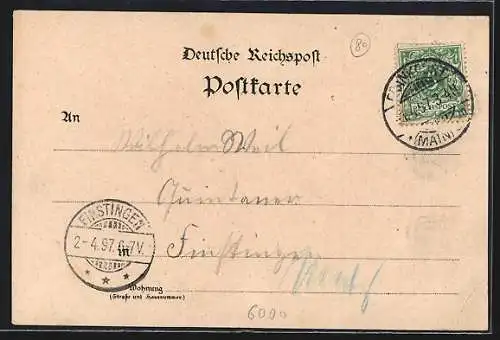 80
Deutsche Reichspost
Postkarte
FRANKFURT
(MAIN)
An
Wilhelm Weil
Quintaner
FINSTINGEN
2-4.97.6-7V.
in
Finstingen
Wohnung
(Straße und Hausnummer)
6000